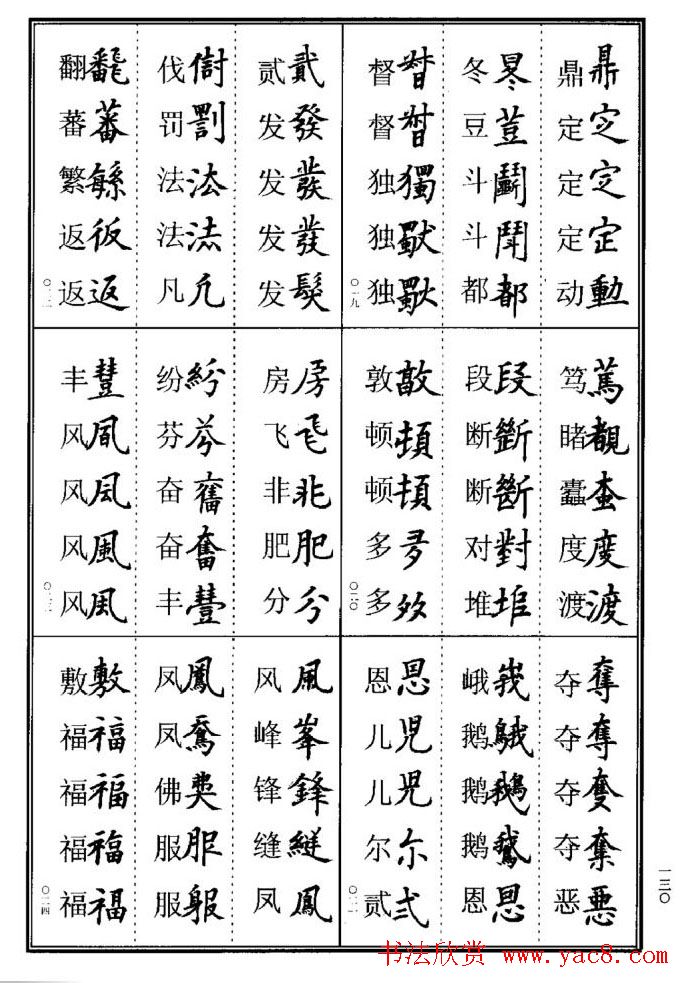 鼎鼎 定㝎 定㝎 定定 动動
冬 豆荳 斗鬭 斗 都都
督 督 独獨 独 独
〇一九
笃篤 睹覩 蠢 度度 渡渡
段段 断斷 断斷 对對 堆
敦敦 顿頓 顿頓 多 多
〇二〇
夺奪 夺奪 夺 夺 恶悪
峨峩 鹅䳘 鹅鵝 鹅鵞 恩恩
恩恩 儿児 儿児 尔尒 贰弍
〇二一
贰貳 发發 发發 发發 发髮
伐 罚罰 法法 法法 凡凡
翻飜 蕃蕃 繁緐 返仮 返返
〇二二
房房 飞飛 非非 肥肥 分分
纷紛 芬芬 奋奮 奋奮 丰豐
丰豐 风 风凨 风風 风風
〇二三
风風 峰峯 锋鋒 缝縫 凤鳳
凤鳳 凤 佛 服服 服
敷敷 福福 福福 福福 福福
〇二四
一三〇
书法欣赏 www.yac8.com